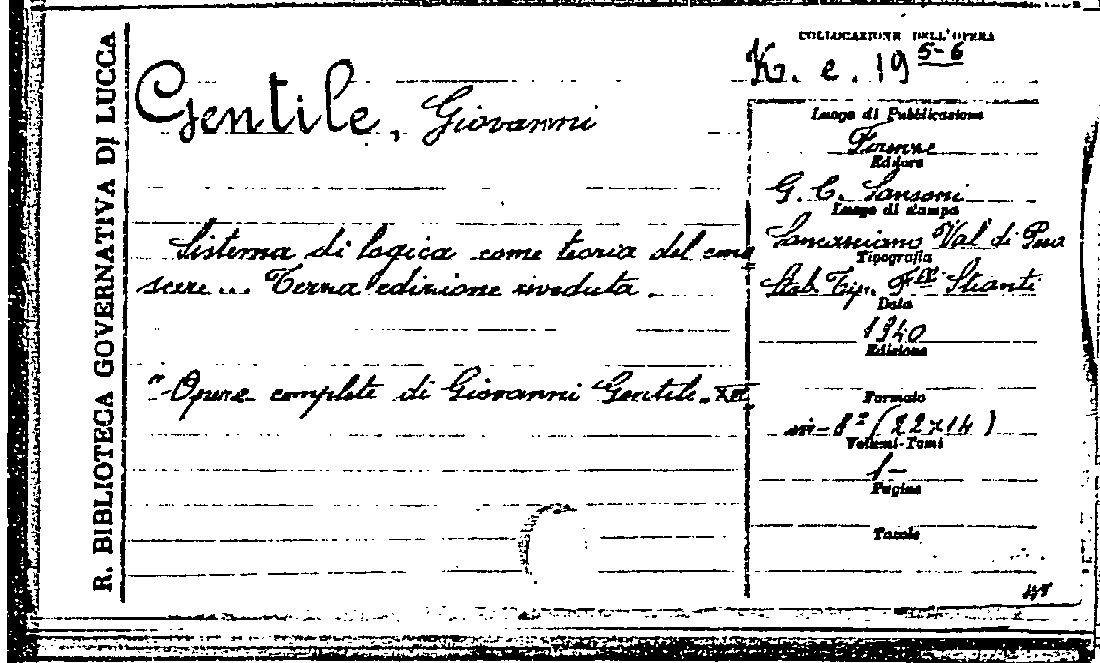 R. BIBLIOTECA GOVERNATIVA DI LUCCA
Gentile, Giovanni
Sistema di logica come teoria del cono
scere... Terza edizione riveduta.
"Opere complete di Giovanni Gentile.
COLLOCAZIONE DELL'OPERA
K. e. 19 5-6
Luogo di Pubblicazione
Firenze
Editore
G. C. Sansoni
Luogo di stampa
Sancasciano Val di Pesa
Tipografia
Stab. Tip. F.lli Stianti
Data
1940
Edizione
Formato
in-8° (22x14)
Volumi-Tomi
1-
Pagine
Tavole